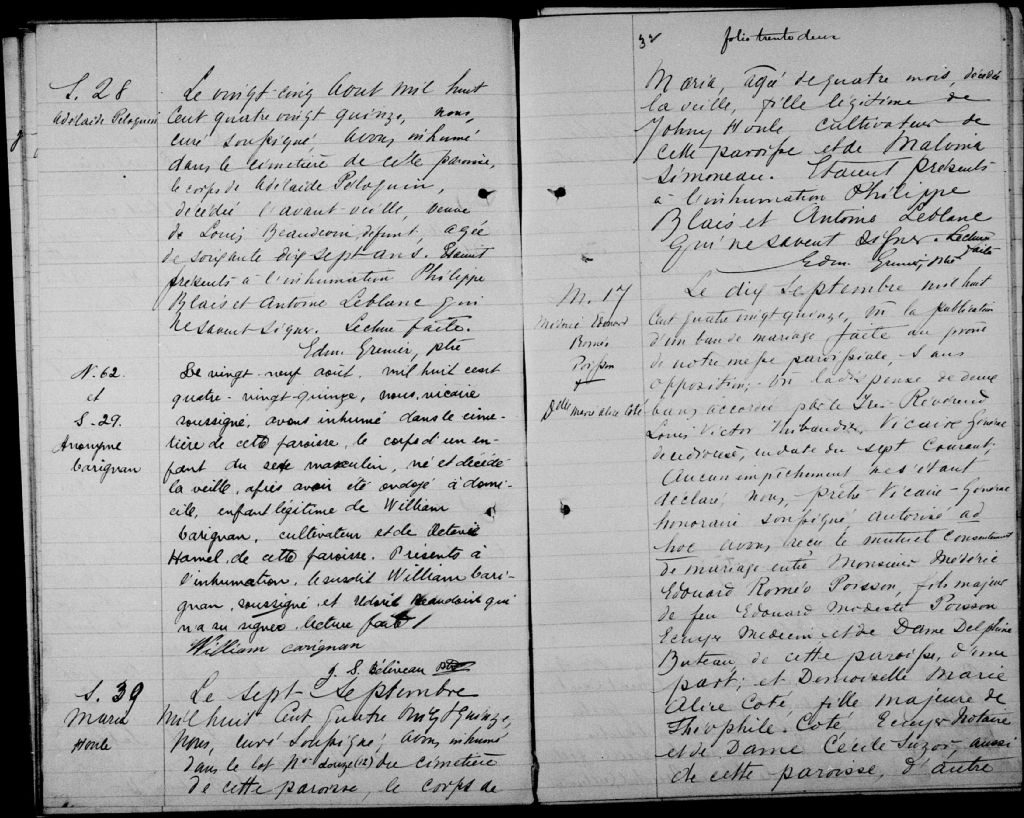 S. 28
Adelaide Peloquin
Le vingt cinq Aout mil huit
Cent quatre vingt quinze, nous,
curé soussigné, avons inhumé
dans le cimetière de cette paroisse,
le corps de Adelaide Peloquin,
décédée l'avant-veille, veuve
de Louis Beaudoin défunt, agée
de soixante dix sept ans. Etaient
présents à l'inhumation Philippe
Blais et Antoine Leblanc qui
ne savent signer. Lecture faite.
Edm. Grenier, ptre
N. 62.
et
S - 29.
Anonyme
Carignan
Le vingt-neuf août, mil huit cent
quatre-vingt-quinze, nous, vicaire
soussigné, avons inhumé dans le cime-
tière de cette paroisse, le corps d'un en-
fant du sexe masculin, né et décédé
la veille, après avoir été ondoyé à domi-
cile, enfant légitime de William
Carignan, cultivateur et de
Hamel, de cette paroisse. Présents à
l'inhumation, le susdit William Cari-
gnan, soussigné et Beaudoin qui
n'a su signer. Lecture faite
William Carignan
J. S. Béliveau ptre
S. 30
Maria
Houle
Le sept Septembre
Mil huit Cent quatre vingt quinze,
Nous, curé soussigné, avons inhumé
dans le lot No. douze (12) du cimetière
de cette paroisse, le corps de
32
folio trente deux
Maria, agée de quatre mois, décédée
la veille, fille légitime de
Johny Houle, cultivateur de
cette paroisse et de Malvina
Simoneau. Etaient présents
à l'inhumation Philippe
Blais et Antoine Leblanc
qui ne savent signer. Lecture
faite
Edm. Grenier, ptre
M. 17
Médéric Edouard
Roméo
Poisson
&
Delle Marie Alice Coté
Le dix Septembre mil huit
Cent quatre vingt quinze, Vu la publication
d'un ban de mariage faite au prone
de notre messe paroissiale, sans
opposition; Vu la dispense de deux
bans accordée par le Très Révérend
Louis Victor Thibaudier, Vicaire Général
du diocèse, en date du sept Courant;
Aucun empêchement ne s'étant
déclaré, nous, prêtre Vicaire-Général
honoraire soussigné, autorisé ad
hoc avons reçu le mutuel consentement
de mariage entre Monsieur Médéric
Edouard Roméo Poisson, fils majeur
de feu Edouard Modeste Poisson
Ecuyer Médecin et de Dame Delphine
Buteau, de cette paroisse, d'une
part; et Demoiselle Marie
Alice Coté, fille majeure de
Théophile Coté Ecuyer Notaire
et de Dame Cécile Suzor, aussi
de cette paroisse, d'autre